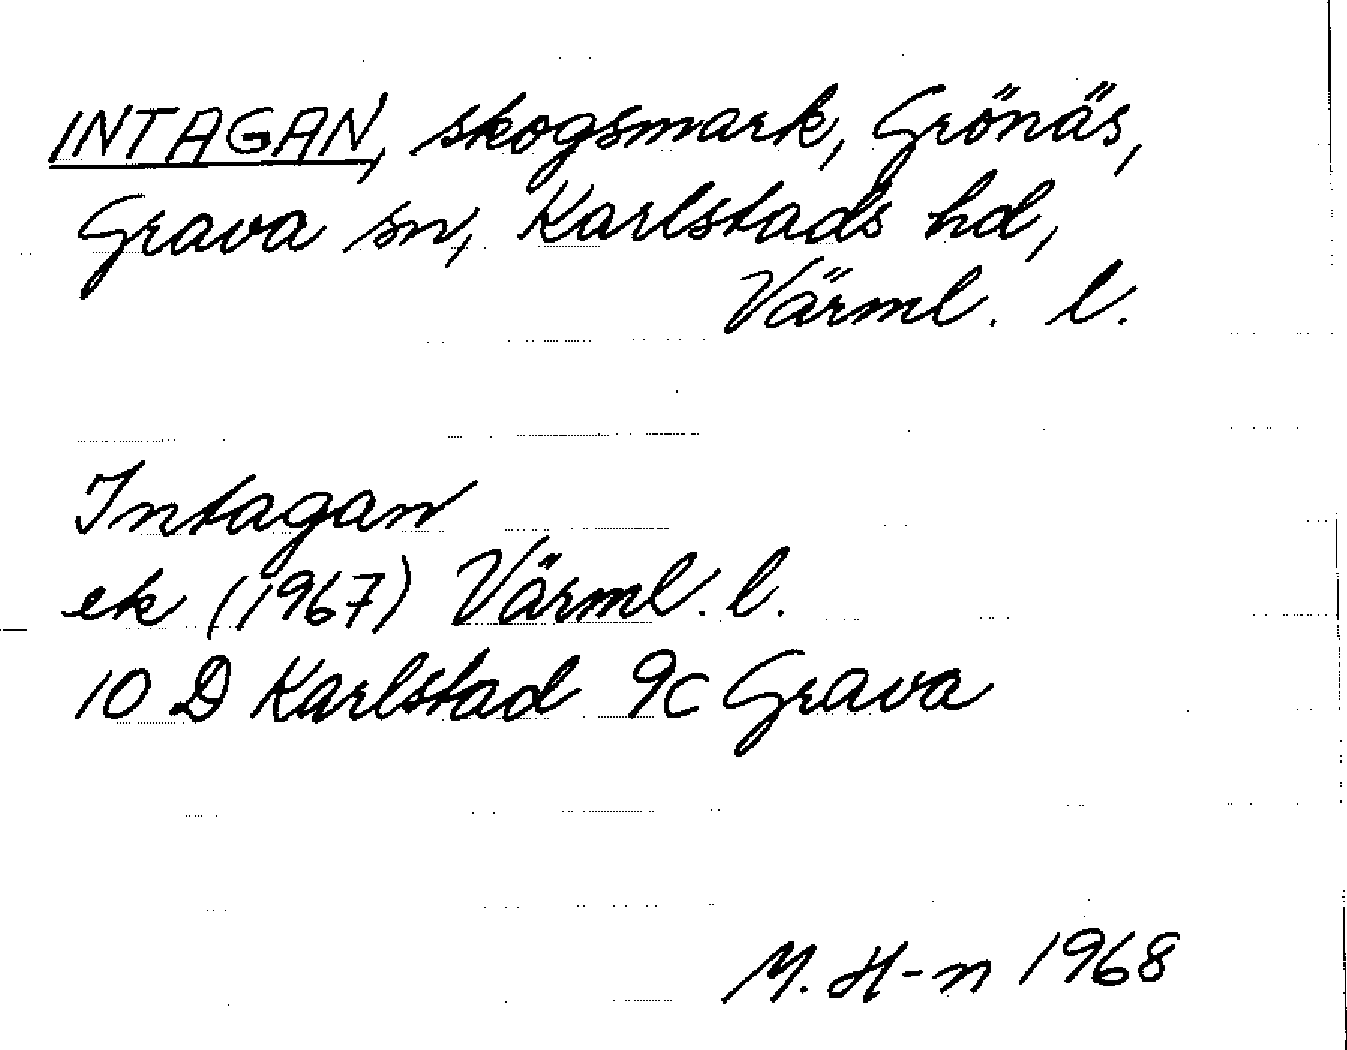 INTAGAN, skogsmark, Grönäs,
Grava sn, Karlstads hd,
Värml. l.
Intagan
ek (1967) Värml. l.
10 D Karlstad 9c Grava
M. H-n 1968